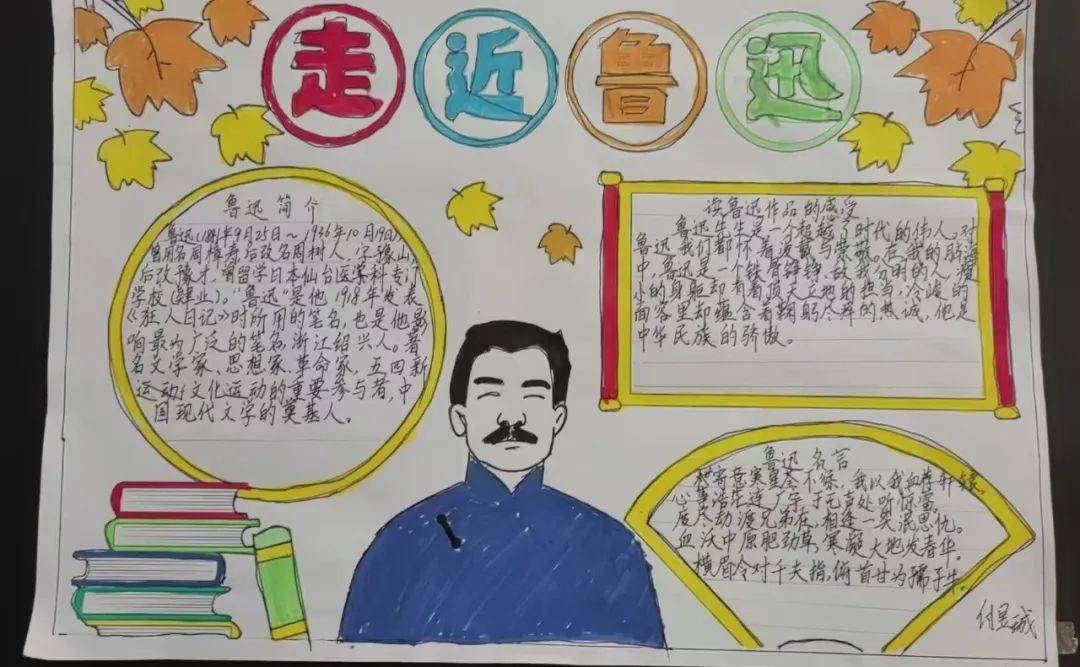 走近鲁迅
鲁迅简介
鲁迅(1881年9月25日~1936年10月19日),
曾用名周樟寿后改名周树人,字豫山,
后改豫才,曾留学日本仙台医学科专门
学校(肄业)。“鲁迅”是他1918年发表
《狂人日记》时所用的笔名,也是他影
响最为广泛的笔名,浙江绍兴人。著
名文学家、思想家、革命家、五四新
运动文化运动的重要参与者,中
国现代文学的奠基人。
读鲁迅作品的感受
鲁迅先生是一个超越了时代的伟人。对
鲁迅,我们都怀着爱戴与崇敬。在我的脑海
中,鲁迅是一个铁骨铮铮,敌我分明的人,瘦
小的身躯却有着顶天立地的担当,冷峻的
面容里却蕴含着鞠躬尽瘁的热诚,他是
中华民族的骄傲。
鲁迅名言
寄意寒星荃不,我以我血荐轩辕。
心事浩茫连广宇,于无声处听惊雷。
度尽劫渡兄弟在,相逢一笑泯恩仇。
血沃中原肥劲草,寒凝大地发春华。
横眉冷对千夫指,俯首甘为孺子牛。
付昱诚